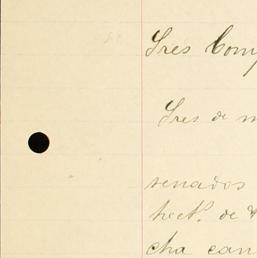 Sres Com
Sres de m
senados
hect. de
cha can